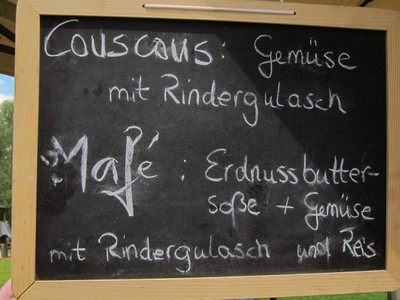 Couscous: Gemüse
mit Rindergulasch
Mafé : Erdnussbutter-
soße + Gemüse
mit Rindergulasch und Reis